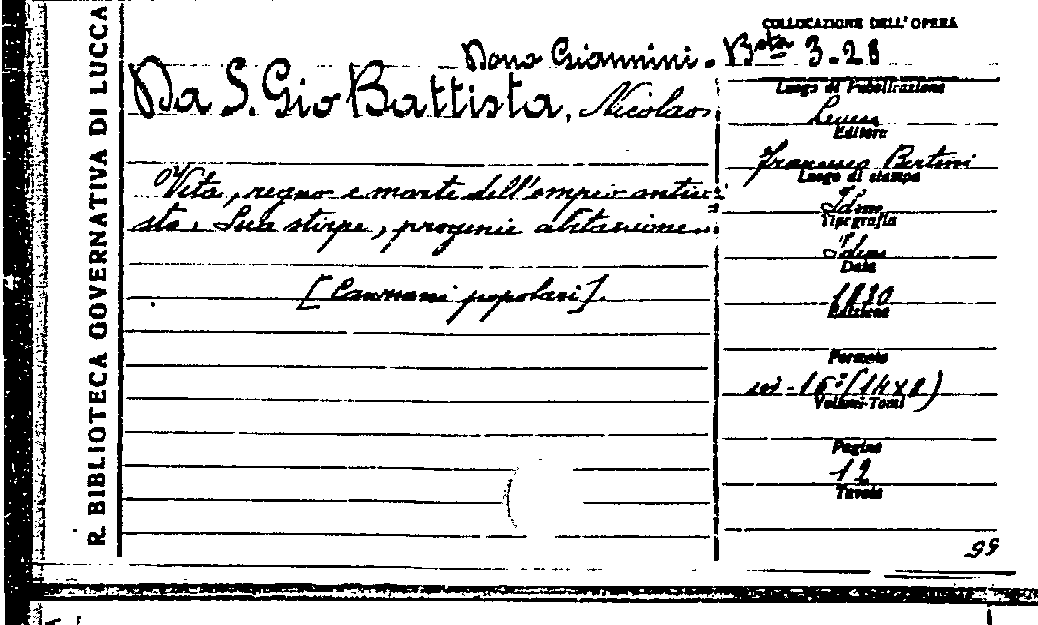 R. BIBLIOTECA GOVERNATIVA DI LUCCA
COLLOCAZIONE DELL'OPERA
Dono Giannini. Bsta 3.28
Da S. Gio Battista, Nicolao
Luogo di Pubblicazione
Lucca
Editore
Francesco Bertini
Luogo di stampa
Idem
Tipografia
Idem
Data
1830
Edizione
Formato
in-16º (14x8)
Volumi-Tomi
Pagine
12
Tavole
Vita, regno e morte dell'empio anticri-
sto. Sua stirpe, progenie abitazione...
[Canzoni popolari].
99